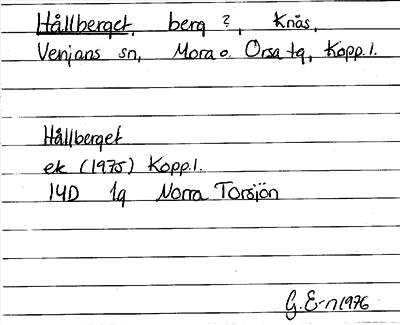 Hållberget, berg ?, Knås,
Venjans sn, Mora o. Orsa tg, Kopp.l.
Hållberget
ek (1975) Kopp.l.
14D 1g Norra Torsjön
G. E-n 1976